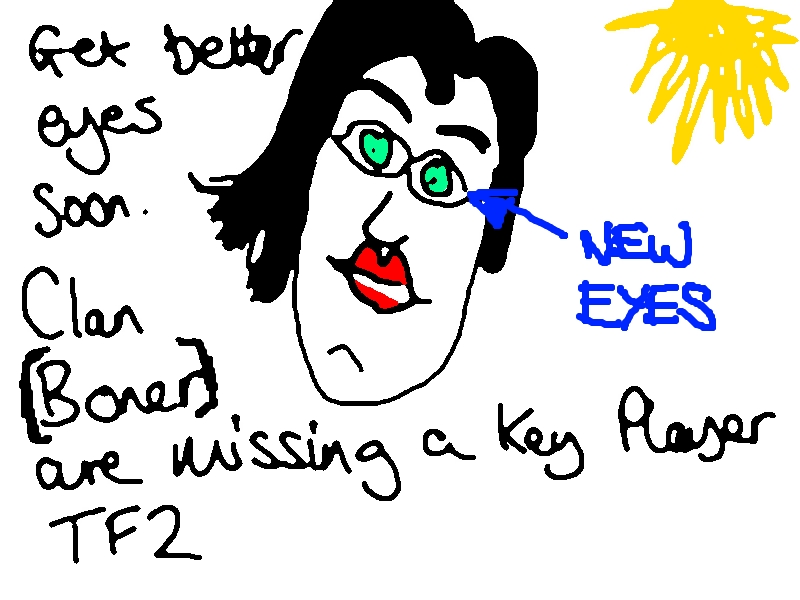 Get better
eyes
soon.
Clan
[Boner]
are missing a key Player
TF2
NEW
EYES